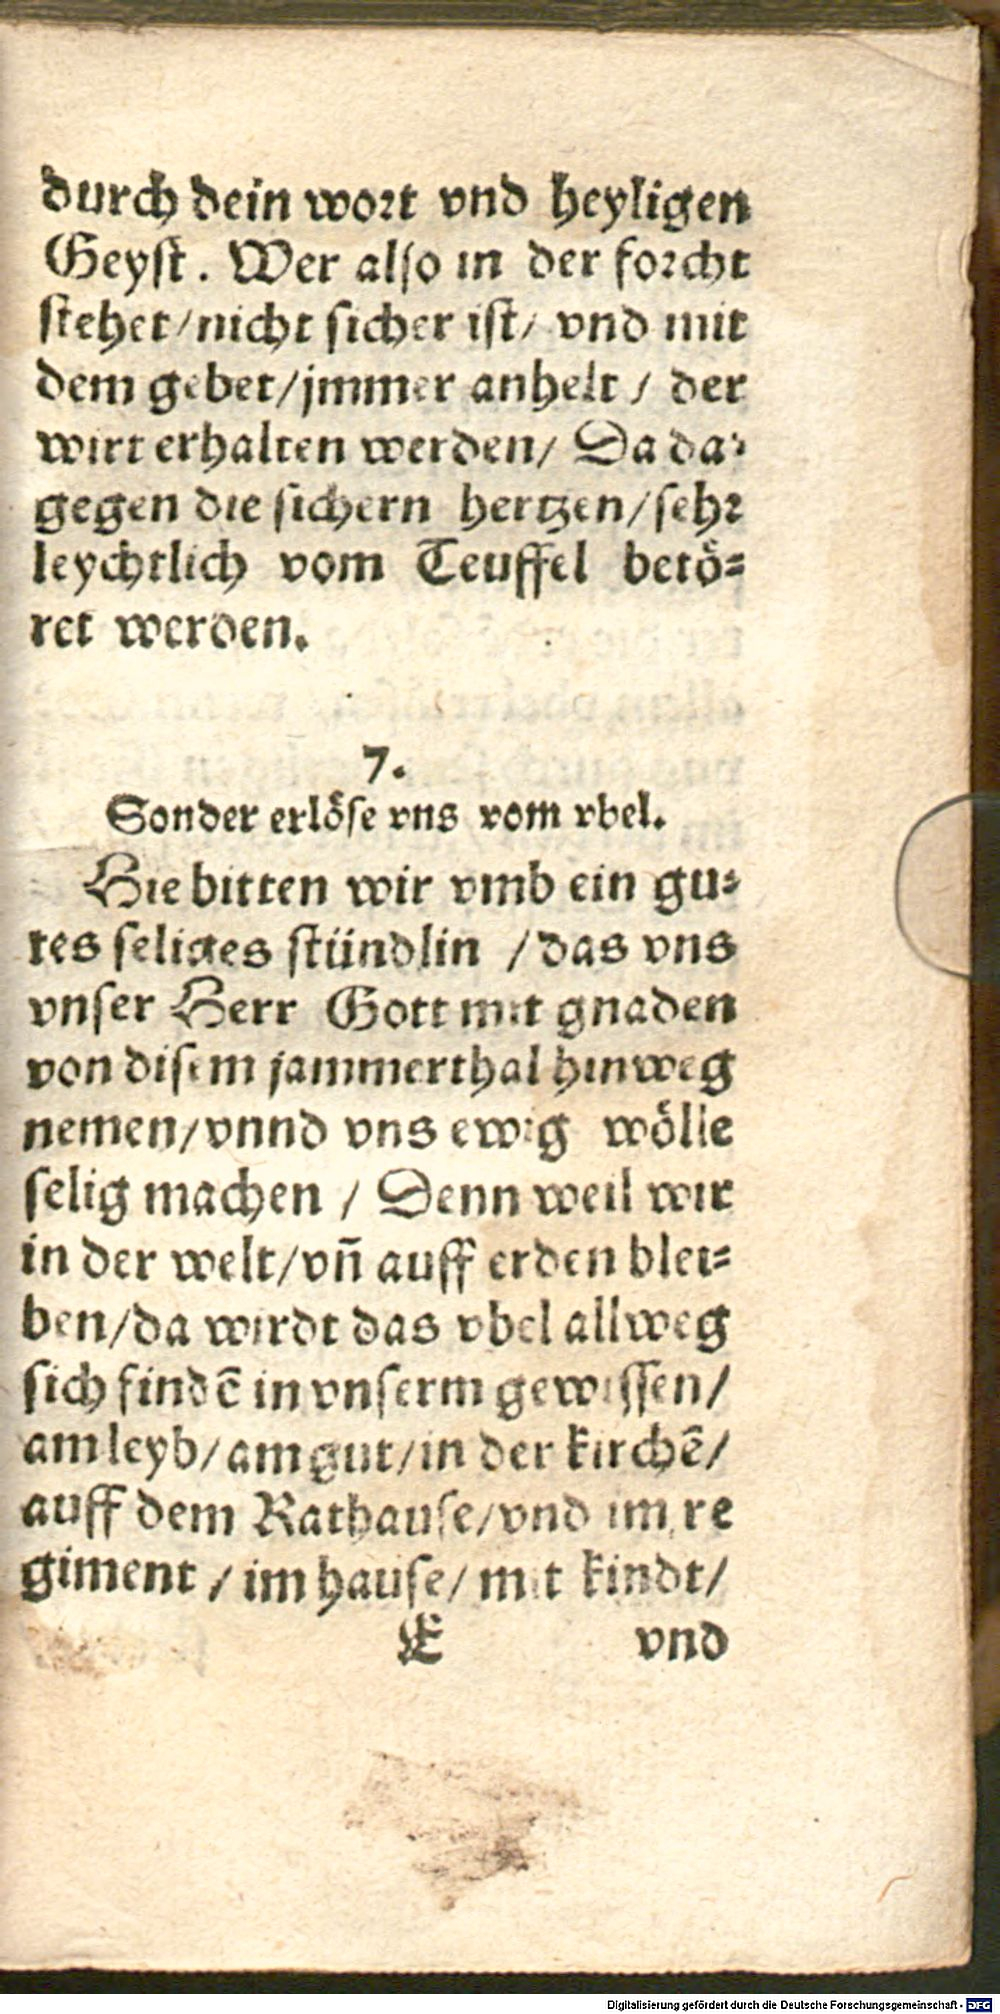 durch dein wort vnd heyligen
Geyst. Wer also in der forcht
stehet/nicht sicher ist/ vnd mit
dem gebet/jmmer anhelt / der
wirt erhalten werden/ Da da-
gegen die sichern hertzen/sehr
leychtlich vom Teuffel betö-
ret werden.
7.
Sonder erlöse vns vom vbel.
Hie bitten wir vmb ein gu-
tes seliges stündlin /das vns
vnser Herr Gott mit gnaden
von disem jammerthal hinweg
nemen/vnnd vns ewig wölle
selig machen / Denn weil wir
in der welt/vn̄ auff erden blei-
ben/da wirdt das vbel allweg
sich findē in vnserm gewissen/
am leyb/am gut/in der kirchē/
auff dem Rathause/vnd im re
giment / im hause/ mit kindt/
E vnd
Digitalisierung gefördert durch die Deutsche Forschungsgemeinschaft - DFG